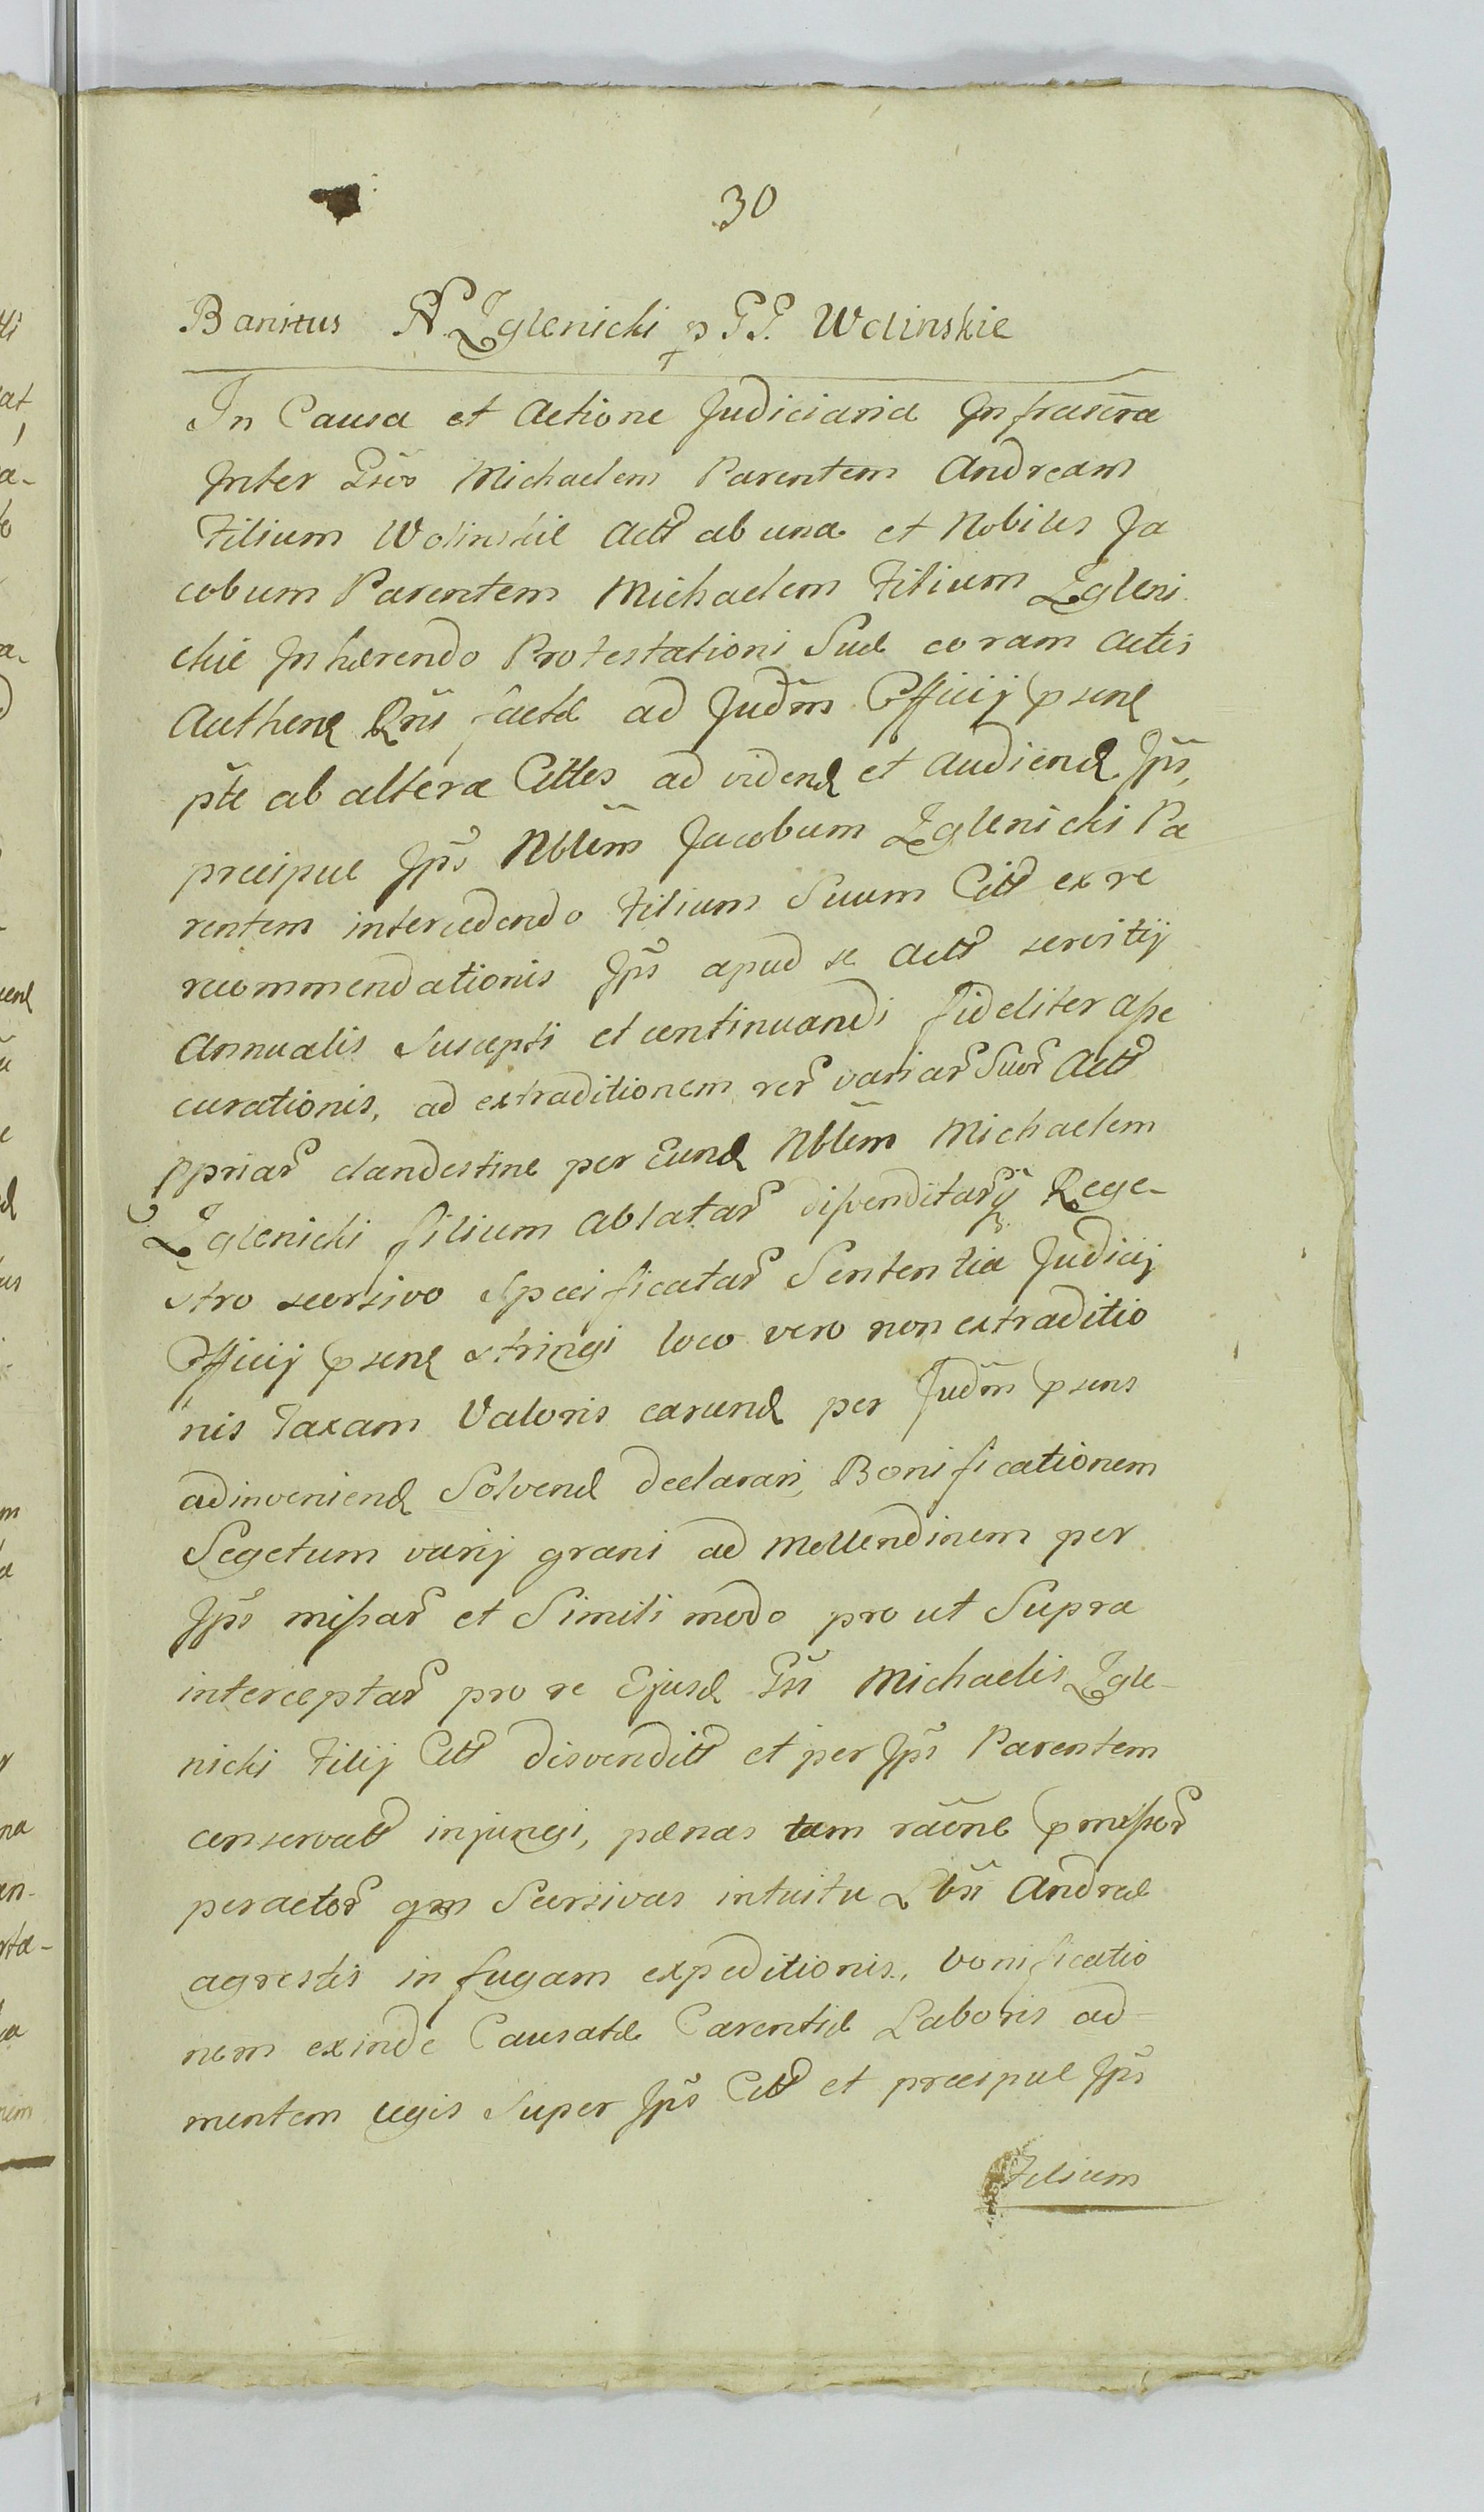 30
Banitus N. Zglenicki p GG. Wolinskie
In Causa et Actione Judiciaria Infrascra
Inter Gsos Michaelem Parentem Andream
Filium Wolinskie Actt ab una et Nobiles Ja
cobum Parentem Michaelem Filium Zgleni
ckie Inhærendo Protestationi Suæ coram Actis
Authen Qris factæ ad Judm Officij psen
pte ab altera Cttes ad viden et audien Jps,
præcipue Jps Nblem Jacobum Zglenicki Pa
rentem intercedendo Filium Suum Citt ex re
recommendationis Jps apud se Actt servitij
Annualis Suscepti et continuandi fideliter asse
curationis, ad extraditionem rer variar Suor Actt
ppriar clandestine per Eund Nblem Michaelem
Zglenicki filium ablatar disvenditarq Rege-
stro seorsivo Specificatar Sententia Judicij
Officij psen stringi loco vero non extraditio
nis Taxam Valoris earund per Judm psens
adinveniend Solvend declarari, Bonificationem
Segetum varij grani ad Mollendinem per
Jps missar et Simili modo pro ut Supra
interceptar pro re Ejusd Gsi Michaelis Zgle-
nicki Filij Citt disvenditt et per Jps Parentem
conservatt injungi, pœnas tam raone pmissor
peractor qm Seorsivas intuitu Lbsi Andreæ
agrestis in fugam expeditionis, bonificatio
nem exinde Causatæ Carentiæ Laboris ad
mentem Legis Super Jps Citt et præcipue Jps
Filium